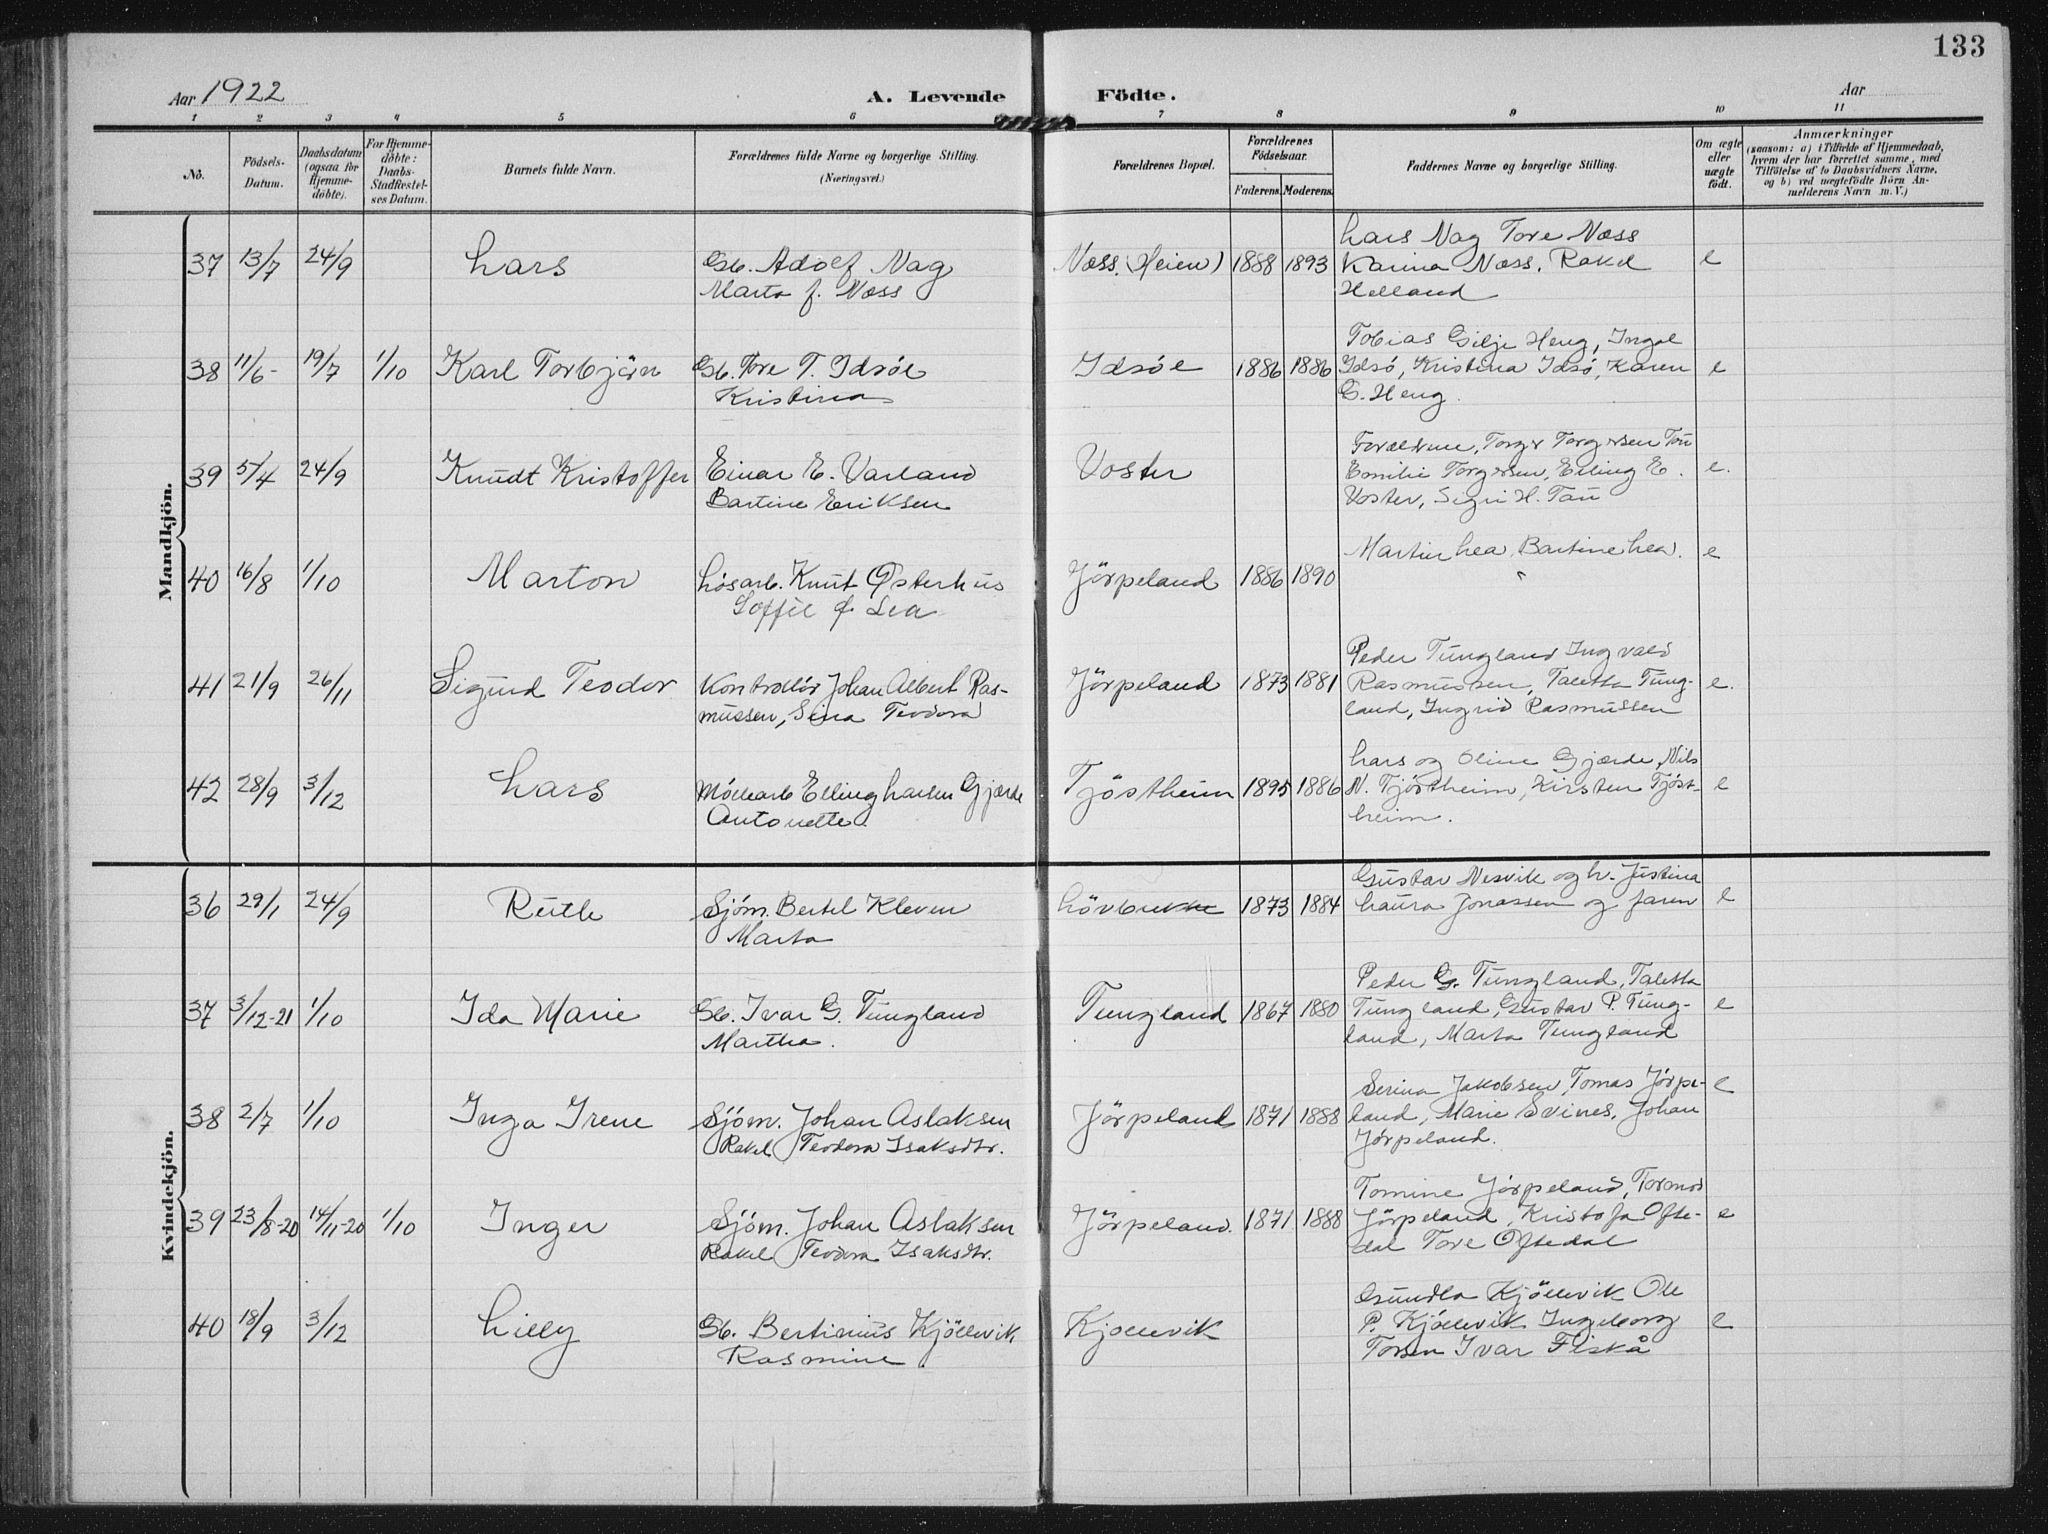 133
Aar 1922 A. Levende Födte. Aar
1 2 3 4 5 6 7 8 9 10 11
No.
Födsels-Datum.
Daabsdatum (ogsaa for Hjemme-döbte).
For Hjemme-döbte: Daabs-Stadfæstel-ses Datum.
Barnets fulde Navn.
Forældrenes fulde Navne og borgerlige Stilling. (Næringsvei.)
Forældrenes Bopæl.
Forældrenes Födselsaar.
Faderens. Moderens.
Faddernes Navne og borgerlige Stilling.
Om ægte eller uægte födt.
Anmærkninger
(saasom: a) i Tilfælde af Hjemmedaab,
hvem der har forrettet samme, med
Tilföielse af to Daabsvidners Navne,
og b) ved uægtefödte Börn An-
melderens Navn m. V.)
Mandkjön.
37 13/7 24/9 Lars Gb. Adolf Nag Næss (Heien) 1888 1893 Lars Nag Tore Næss e
Marta f. Næss Karina Næss, Rakel
Helland
38 11/6- 19/7 1/10 Karl Torbjörn Gb. Tore T. Idsöe Idsöe 1886 1886 Tobias Gilje Heng, Ingal e
Kristina Idsö, Kristina Idsö, Karen
G. Heng.
39 5/4 24/9 Knudt Kristoffer Einar E. Varland Voster Forældrene, Torger Torgersen Tau e.
Bartine Eriksen Emilie Torgersen, Elling E.
Voster, Sigri H. Tau
40 16/8 1/10 Marton Løsarb. Knut Østerhus Jörpeland 1886 1890 Martin Lea, Bartine Lea. e
Soffie f. Lea
41 21/9 26/11 Sigurd Teodor Kontrollör Johan Albert Ras- Jörpeland 1873 1881 Peder Tungland Ingvald e.
mussen, Sina Teodora Rasmussen, Taletta Tung-
land, Ingrid Rasmussen
42 28/9 3/12 Lars Möllearb Elling Larsen Gjærde Tjöstheim 1895 1886 Lars og Oline Gjærde, Nils e
Antonette. N. Tjöstheim, Kirsten Tjöst-
heim.
Kvindekjön.
36 29/1 24/9 Ruth Sjöm. Bertel Kleven Lövbrekke 1873 1884 Gustav Nesvik og h. Justina e
Marta Laura Jonassen og faren
37 3/12-21 1/10 Ida Marie Gb. Ivar G. Tungland Tungland 1867 1880 Peder G. Tungland, Taletta e
Martha. Tungland, Gustav P. Tung-
land, Marta Tungland
38 2/7 1/10 Inga Irene Sjöm. Johan Aslaksen Jörpeland 1871 1888 Serina Jakobsen, Tomas Jörpe- e
Rakel Teodora Isaksdtr. land, Marie Svines, Johan
Jörpeland.
39 23/8-20 14/11-20 1/10 Inger Sjöm. Johan Aslaksen Jörpeland. 1871 1888 Tomine Jörpeland, Tormod e
Rakel Teodora Isaksdtr. Jörpeland, Kristofa Ofte-
dal Tore Oftedal
40 18/9 3/12 Lilly Gb. Bertinius Kjöllevik Kjollevik Gundla Kjöllevik Ole e
Rasmine P. Kjöllevik Ingeborg
Ivar Fiskå